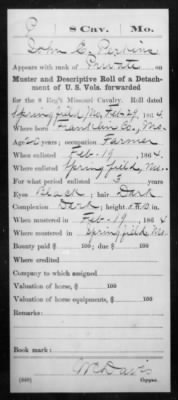 P 8 Cav. Mo.
John C. Perkins
Appears with rank of Private on
Muster and Descriptive Roll of a Detach-
ment of U. S. Vols. forwarded
for the 8 Reg't Missouri Cavalry. Roll dated
Springfield Mo. Feb 29, 1864.
Where born Franklin Co., Mo.
Age 22 years; occupation Farmer
When enlisted Feb - 19, 1864.
Where enlisted Springfield, Mo.
For what period enlisted 3 years
Eyes Black; hair Dark
Complexion Dark; height 5 ft. in.
When mustered in Feb - 19, 1864
Where mustered in Springfield, Mo.
Bounty paid $ 100; due $ 100
Where credited
Company to which assigned
Valuation of horse, $ 100
Valuation of horse equipments, $ 100
Remarks:
Book mark:
W. Davis
(339) Copyist.